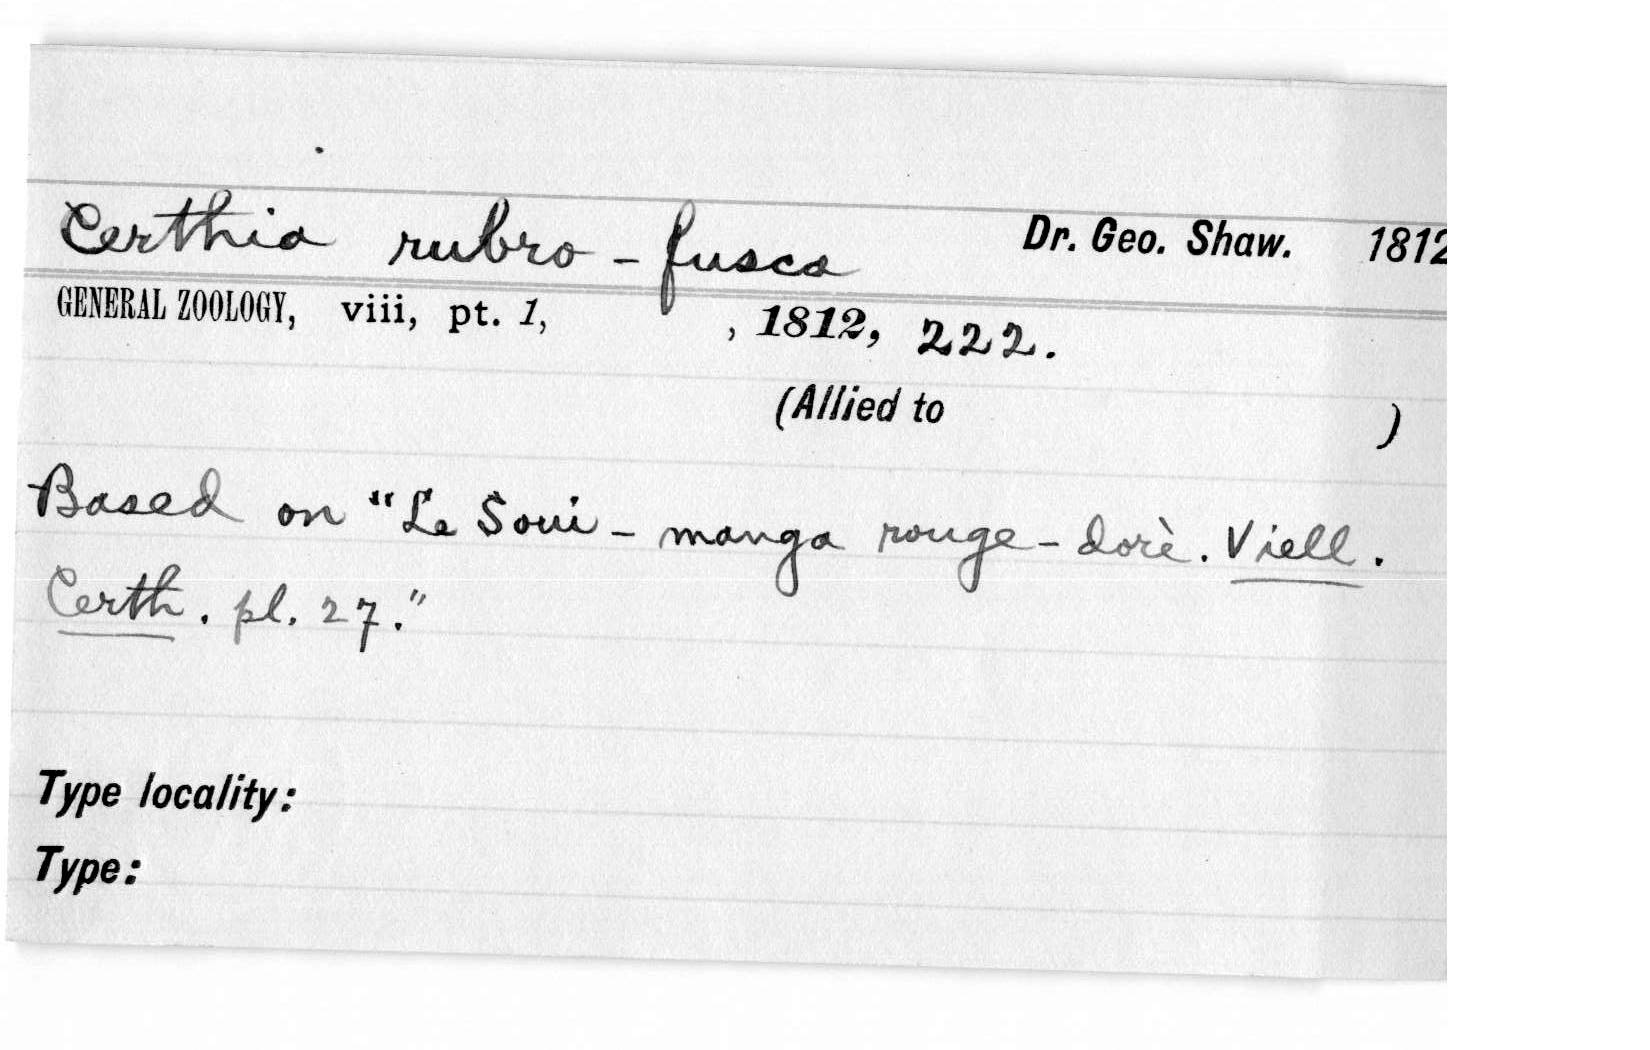 Certhia rubro-fusca Dr. Geo. Shaw. 1812
GENERAL ZOOLOGY, viii, pt. 1, , 1812, 222.
(Allied to )
Based on "Le Soui-manga rouge-dorè. Viell.
Certh. pl. 27."
Type locality:
Type: